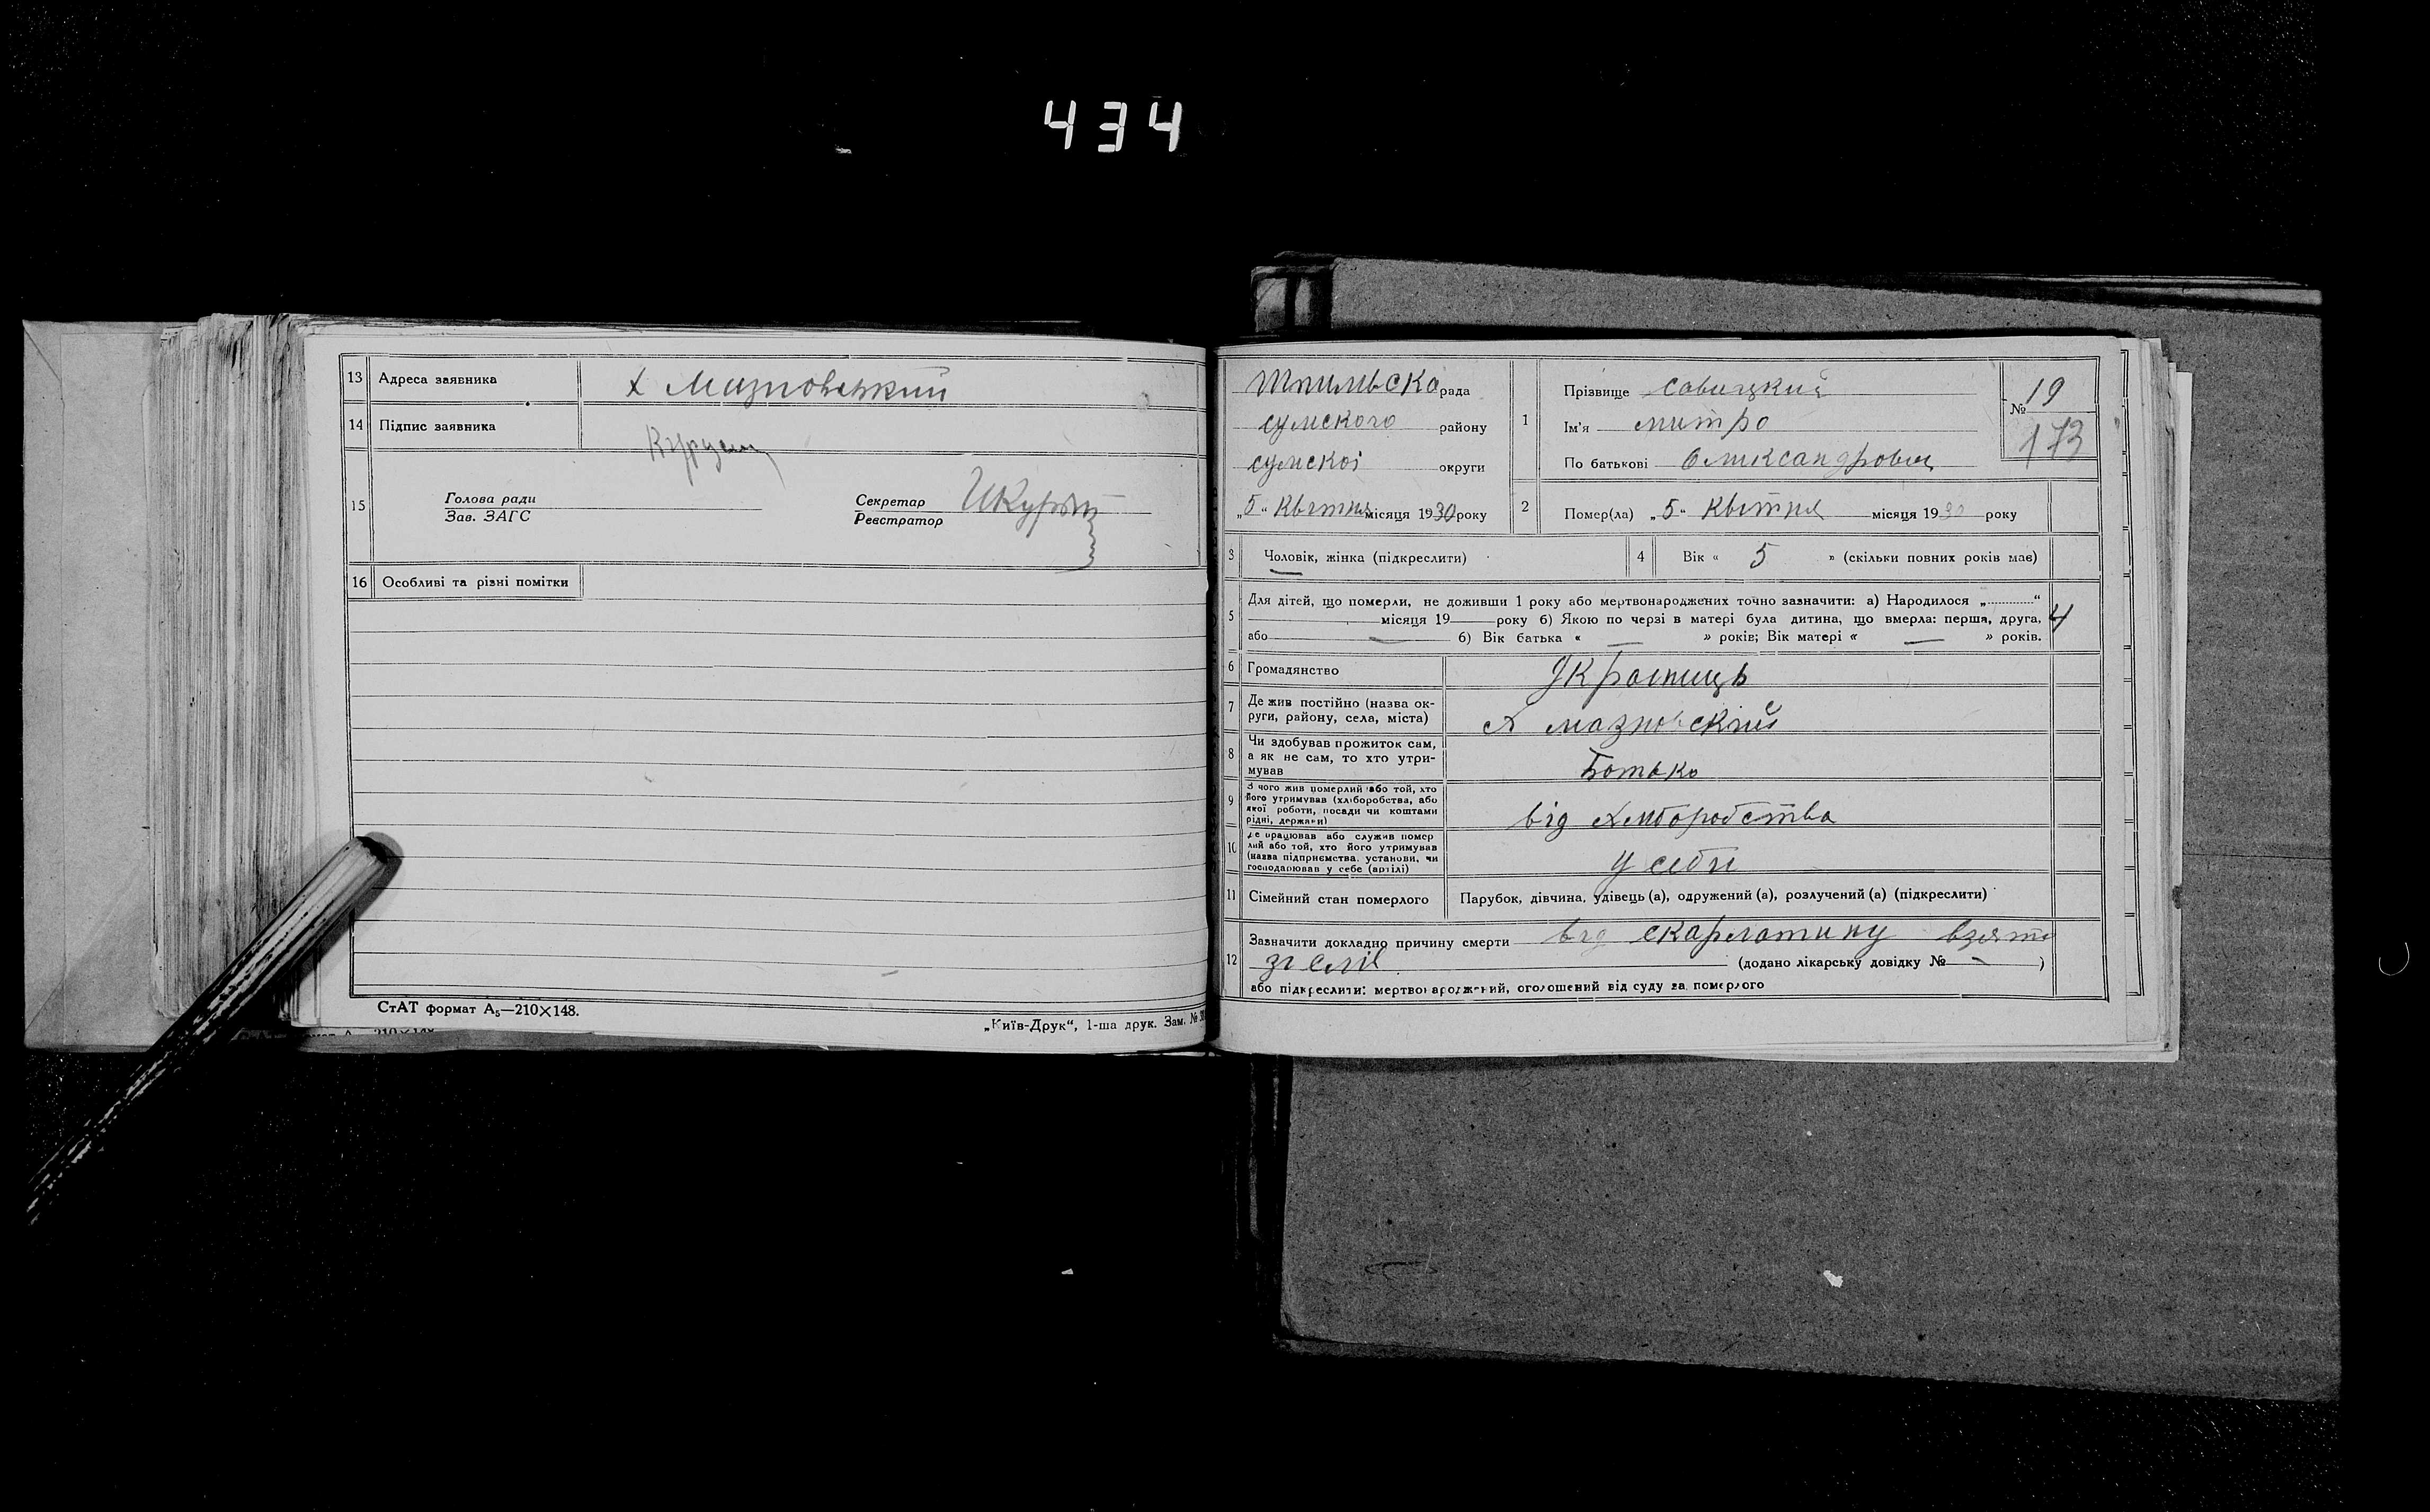 434
13 Адреса заявника х Мазновецкий
14 Підпис заявника
15 Голова ради
Зав. ЗАГС
Секретар
Реєстратор
16 Особливі та різні помітки
СтАТ формат А₅—210×148.
„Київ-Друк“, 1-ша друк. Зам. №
Шпилівска рада
сумского району
сумскої округи
„5“ Квітня місяця 1930 року
1 Прізвище Савицкий
Ім'я митро
По батькові Олександрович
№ 19
173
2 Помер(ла) „5“ Квітня місяця 1930 року
3 Чоловік, жінка (підкреслити)
4 Вік « 5 » (скільки повних років має)
5 Для дітей, що померли, не доживши 1 року або мертвонароджених точно зазначити: а) Народилося „............“
місяця 19 року б) Якою по черзі в матері була дитина, що вмерла: перша, друга,
або — б) Вік батька « — » років; Вік матері « — » років.
4
6 Громадянство Украінець
7 Де жив постійно (назва ок-
руги, району, села, міста) х мазновский
8 Чи здобував прожиток сам,
а як не сам, то хто утри-
мував Батько
9 З чого жив померлий або той, хто
його утримував (хліборобства, або
якої роботи, посади чи коштами
рідні, держави) від хліборобства
10 Де працював або служив помер
лий або той, хто його утримував
(назва підприємства, установи, чи
господарював у себе (артілі) у себе
11 Сімейний стан померлого Парубок, дівчина, удівець (а), одружений (а), розлучений (а) (підкреслити)
12 Зазначити докладно причину смерти від скарлатину взято
зі слів (додано лікарську довідку № — )
або підкреслити: мертвонароджений, оголошений від суду за померлого